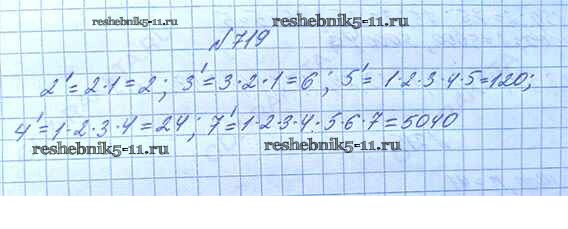 reshebnik5-11.ru
№719
2' = 2·1 = 2; 3' = 3·2·1 = 6; 5' = 1·2·3·4·5 = 120;
4' = 1·2·3·4 = 24; 7' = 1·2·3·4·5·6·7 = 5040
reshebnik5-11.ru reshebnik5-11.ru